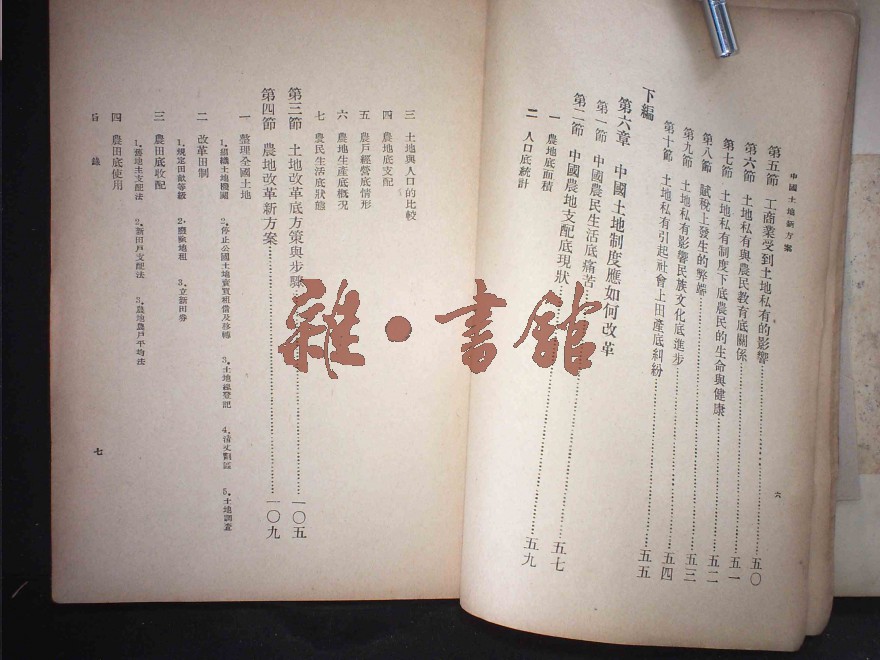 中國土地新方案
六
第五節 工商業受到土地私有的影響……五〇
第六節 土地私有與農民教育底關係……五一
第七節 土地私有制度下底農民的生命與健康……五二
第八節 賦稅上發生的弊端……五三
第九節 土地私有影響民族文化底進步……五四
第十節 土地私有引起社會上田產底糾紛……五五
下編
第六章 中國土地制度應如何改革
第一節 中國農民生活底痛苦……五七
第二節 中國農地支配底現狀……五九
一 農地底面積
二 人口底統計
三 土地與人口的比較
四 農地底支配
五 農戶經營底情形
六 農地生產底概况
七 農民生活底狀態
第三節 土地改革底方策與步驟……一〇五
第四節 農地改革新方案……一〇九
一 整理全國土地
1.組織土地機關 2.停止公國土地賣買租借及移轉 3.土地總登記 4.清丈劃區 5.土地調查
二 改革田制
1.規定田畝等級 2.廢除地租 3.立新田券
三 農田底收配
1.舊地主支配法 2.新田戶支配法 3.農地農戶平均法
四 農田底使用
目錄
七
雜·書館